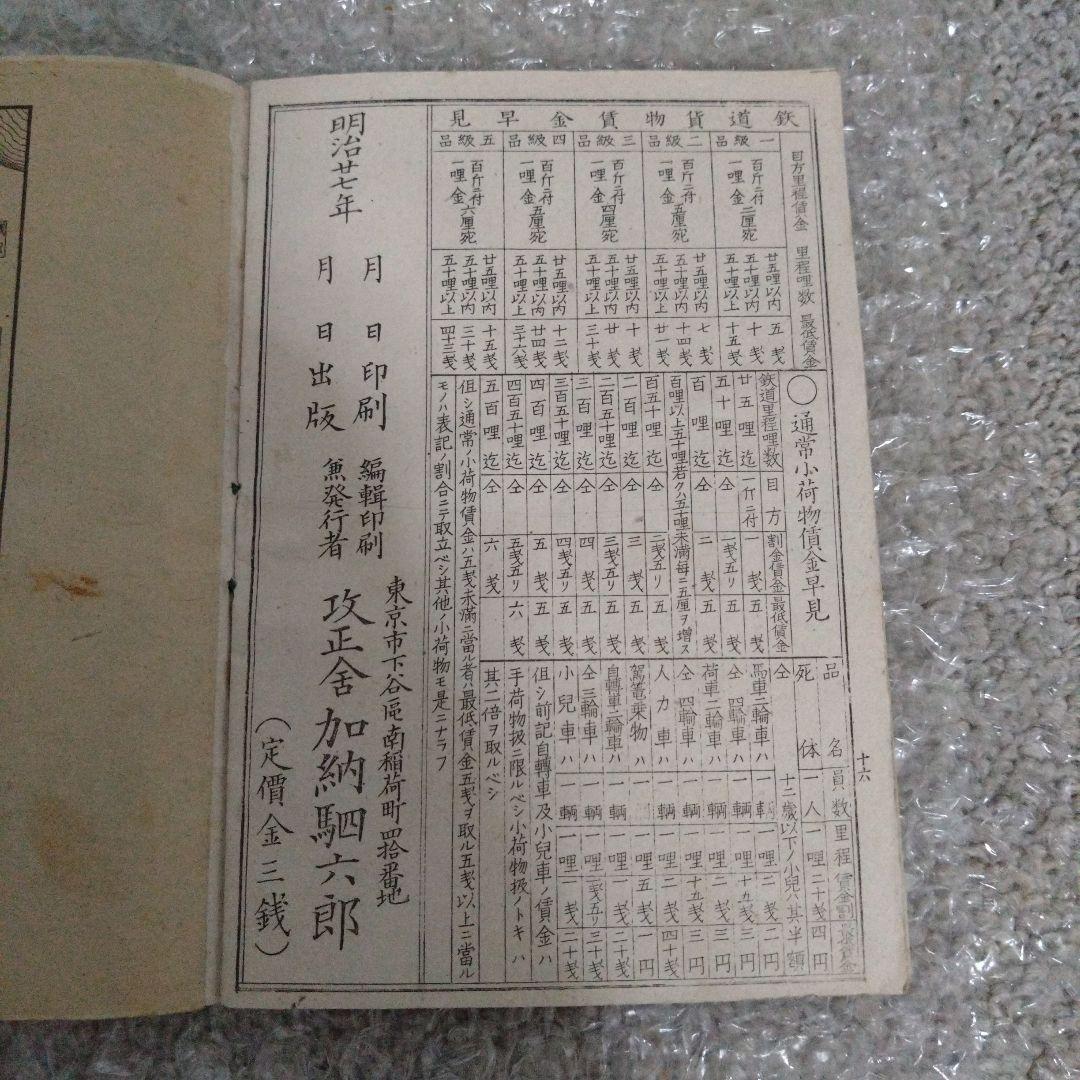 鉄道貨物賃金早見
目方里程賃金 里程哩数 最低賃金
一級品 百斤ニ付一哩金二厘宛
廿五哩以内 五戔
五十哩以内 十戔
五十哩以上 十五戔
二級品 百斤ニ付一哩金五厘宛
廿五哩以内 七戔
五十哩以内 十四戔
五十哩以上 廿一戔
三級品 百斤ニ付一哩金四厘宛
廿五哩以内 十戔
五十哩以内 廿戔
五十哩以上 三十戔
四級品 百斤ニ付一哩金五厘宛
廿五哩以内 十二戔
五十哩以内 廿四戔
五十哩以上 三十六戔
五級品 百斤ニ付一哩金六厘宛
廿五哩以内 十五戔
五十哩以内 三十戔
五十哩以上 四十三戔
〇通常小荷物賃金早見
鉄道里程哩数 目方 割金賃金 最低賃金
廿五哩迄 一斤ニ付 一戔 五戔
五十哩迄 仝 一戔五リ 五戔
百哩迄 仝 二戔 五戔
百哩以上五十哩若クハ五十哩未満毎ニ五厘ヲ増ス
百五十哩迄 仝 二戔五リ 五戔
二百哩迄 仝 三戔 五戔
二百五十哩迄 仝 三戔五リ 五戔
三百哩迄 仝 四戔 五戔
三百五十哩迄 仝 四戔五リ 五戔
四百哩迄 仝 五戔 五戔
四百五十哩迄 仝 五戔五リ 六戔
五百哩迄 仝 六戔
但シ通常ノ小荷物賃金ハ五戔未満ニ當ル者ハ最低賃金五戔ヲ取ル五戔以上ニ當ル
モノハ表記ノ割合ニテ取立ベシ其他ノ小荷物モ是ニナラフ
品名 員数 里程 賃金割 最低賃金
死体 一人 一哩 二十戔 四円
仝 十二歳以下ノ小兒ハ其半額
馬車二輪車ハ 一輌 一哩 二戔 二円
仝 四輪車ハ 一輌 一哩 十九戔 三円
荷車二輪車ハ 一輌 一哩 二戔 二円
仝 四輪車ハ 一輌 一哩 十五戔 三円
人力車ハ 一輌 一哩 二戔 四十戔
駕篭乗物ハ 一哩 五戔 一円
自轉車二輪車ハ 一輌 一哩 一戔 二十戔
仝 三輪車ハ 一輌 一哩 二戔五リ 三十戔
小兒車ハ 一輌 一哩 一戔 二十戔
但シ前記自轉車及小兒車ノ賃金ハ
手荷物扱ニ限ルベシ小荷物扱ノトキハ
其二倍ヲ取ルベシ
十六
明治廿七年 月 日印刷
月 日出版
編輯印刷
兼発行者
東京市下谷區南稲荷町四拾番地
攻正舍 加納駟六郎
(定價金三銭)